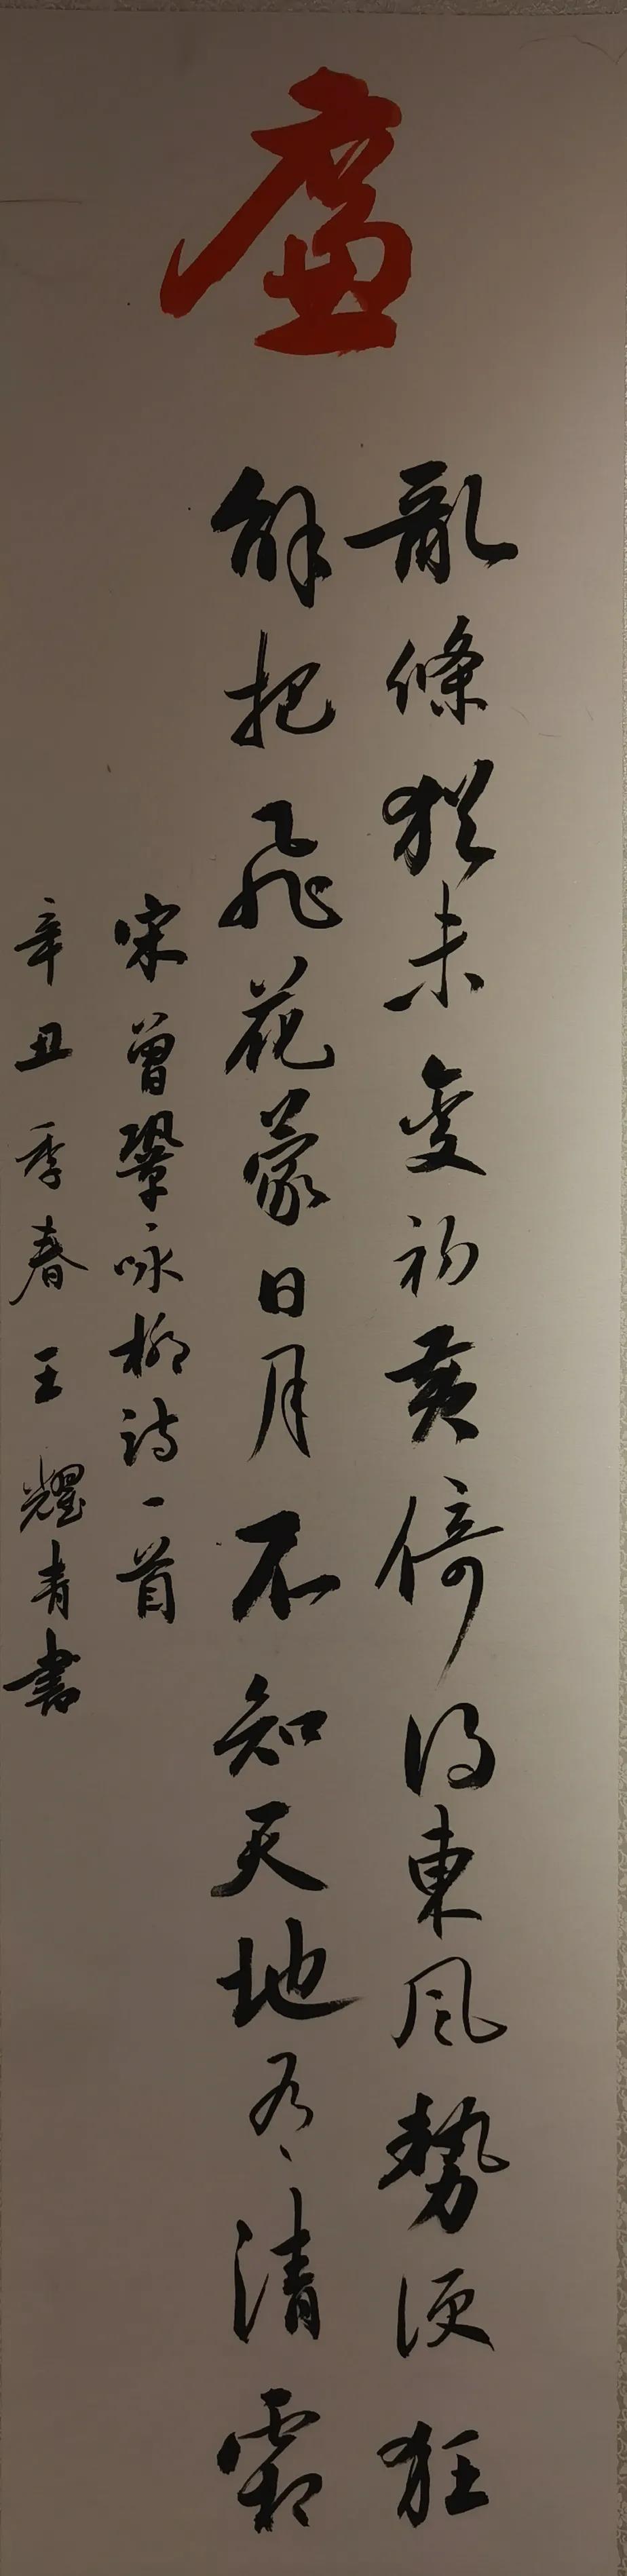 廉
亂條猶未變初黃倚得東風勢便狂
解把飛花蒙日月不知天地有清霜
宋曾鞏咏柳詩一首
辛丑季春王耀青書